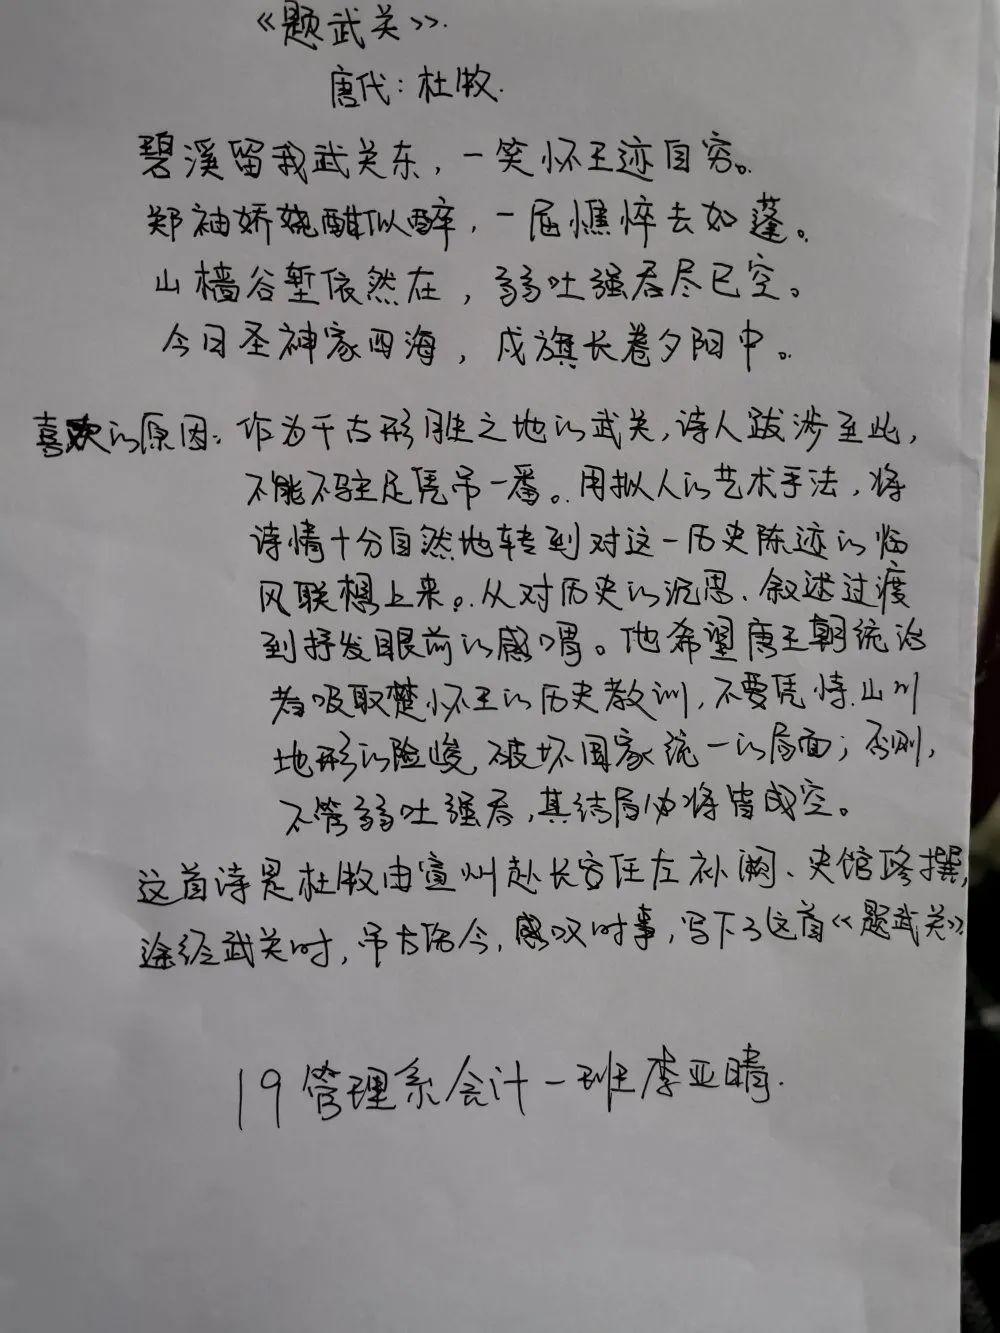 《题武关》.
唐代：杜牧.
碧溪留我武关东，一笑怀王迹自穷。
郑袖娇娆酣似醉，一屈憔悴去如蓬。
山樯谷堑依然在，弱吐强吞尽已空。
今日圣神家四海，戍旗长卷夕阳中。
喜欢的原因：作为千古形胜之地的武关，诗人跋涉至此，
不能不驻足凭吊一番。用拟人的艺术手法，将
诗情十分自然地转到对这一历史陈迹的临
风联想上来。从对历史的沉思、叙述过渡
到抒发眼前的感喟。他希望唐王朝统治
者吸取楚怀王的历史教训，不要凭恃山川
地形的险峻，破坏国家统一的局面；否则，
不管弱吐强吞，其结局必将皆成空。
这首诗是杜牧由宣州赴长安任左补阙、史馆修撰，
途经武关时，吊古伤今，感叹时事，写下了这首《题武关》
19管理系会计一班李亚晴.